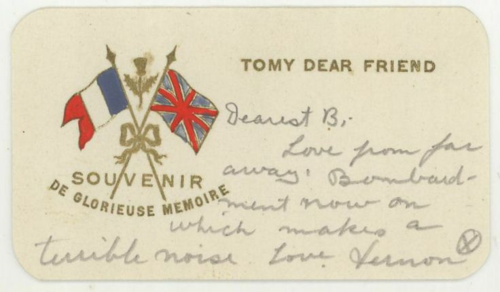 TO MY DEAR FRIEND
SOUVENIR
DE GLORIEUSE MEMOIRE
Dearest B,-
Love from far
away! Bombard-
ment now on
which makes a
terrible noise. Love Vernon X